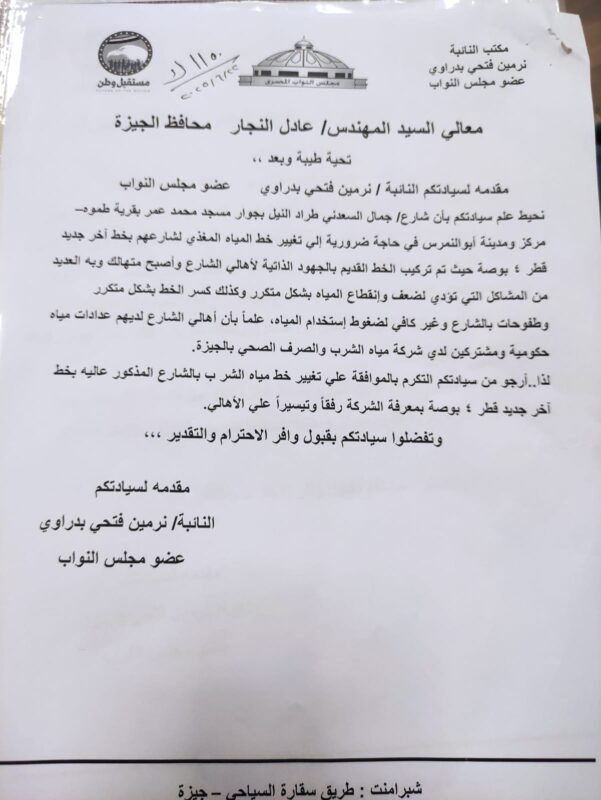 مكتب النائبة
نرمين فتحي بدراوي
عضو مجلس النواب
مجلس النواب المصري
مستقبل وطن
١١٥٠
٢٠٢٥/٦/٢٢
معالي السيد المهندس/ عادل النجار محافظ الجيزة
تحية طيبة وبعد ،،
مقدمه لسيادتكم النائبة / نرمين فتحي بدراوي عضو مجلس النواب
نحيط علم سيادتكم بأن شارع/ جمال السعدني طراد النيل بجوار مسجد محمد عمر بقرية طموه–
مركز ومدينة أبوالنمرس في حاجة ضرورية إلي تغيير خط المياه المغذي لشارعهم بخط آخر جديد
قطر ٤ بوصة حيث تم تركيب الخط القديم بالجهود الذاتية لأهالي الشارع وأصبح متهالك وبه العديد
من المشاكل التي تؤدي لضعف وإنقطاع المياه بشكل متكرر وكذلك كسر الخط بشكل متكرر
وطفوحات بالشارع وغير كافي لضغوط إستخدام المياه، علماً بأن أهالي الشارع لديهم عدادات مياه
حكومية ومشتركين لدي شركة مياه الشرب والصرف الصحي بالجيزة.
لذا..أرجو من سيادتكم التكرم بالموافقة علي تغيير خط مياه الشر ب بالشارع المذكور عاليه بخط
آخر جديد قطر ٤ بوصة بمعرفة الشركة رفقاً وتيسيراً علي الأهالي.
وتفضلوا سيادتكم بقبول وافر الاحترام والتقدير ،،،
مقدمه لسيادتكم
النائبة/ نرمين فتحي بدراوي
عضو مجلس النواب
شبرامنت : طريق سقارة السياحي – جيزة